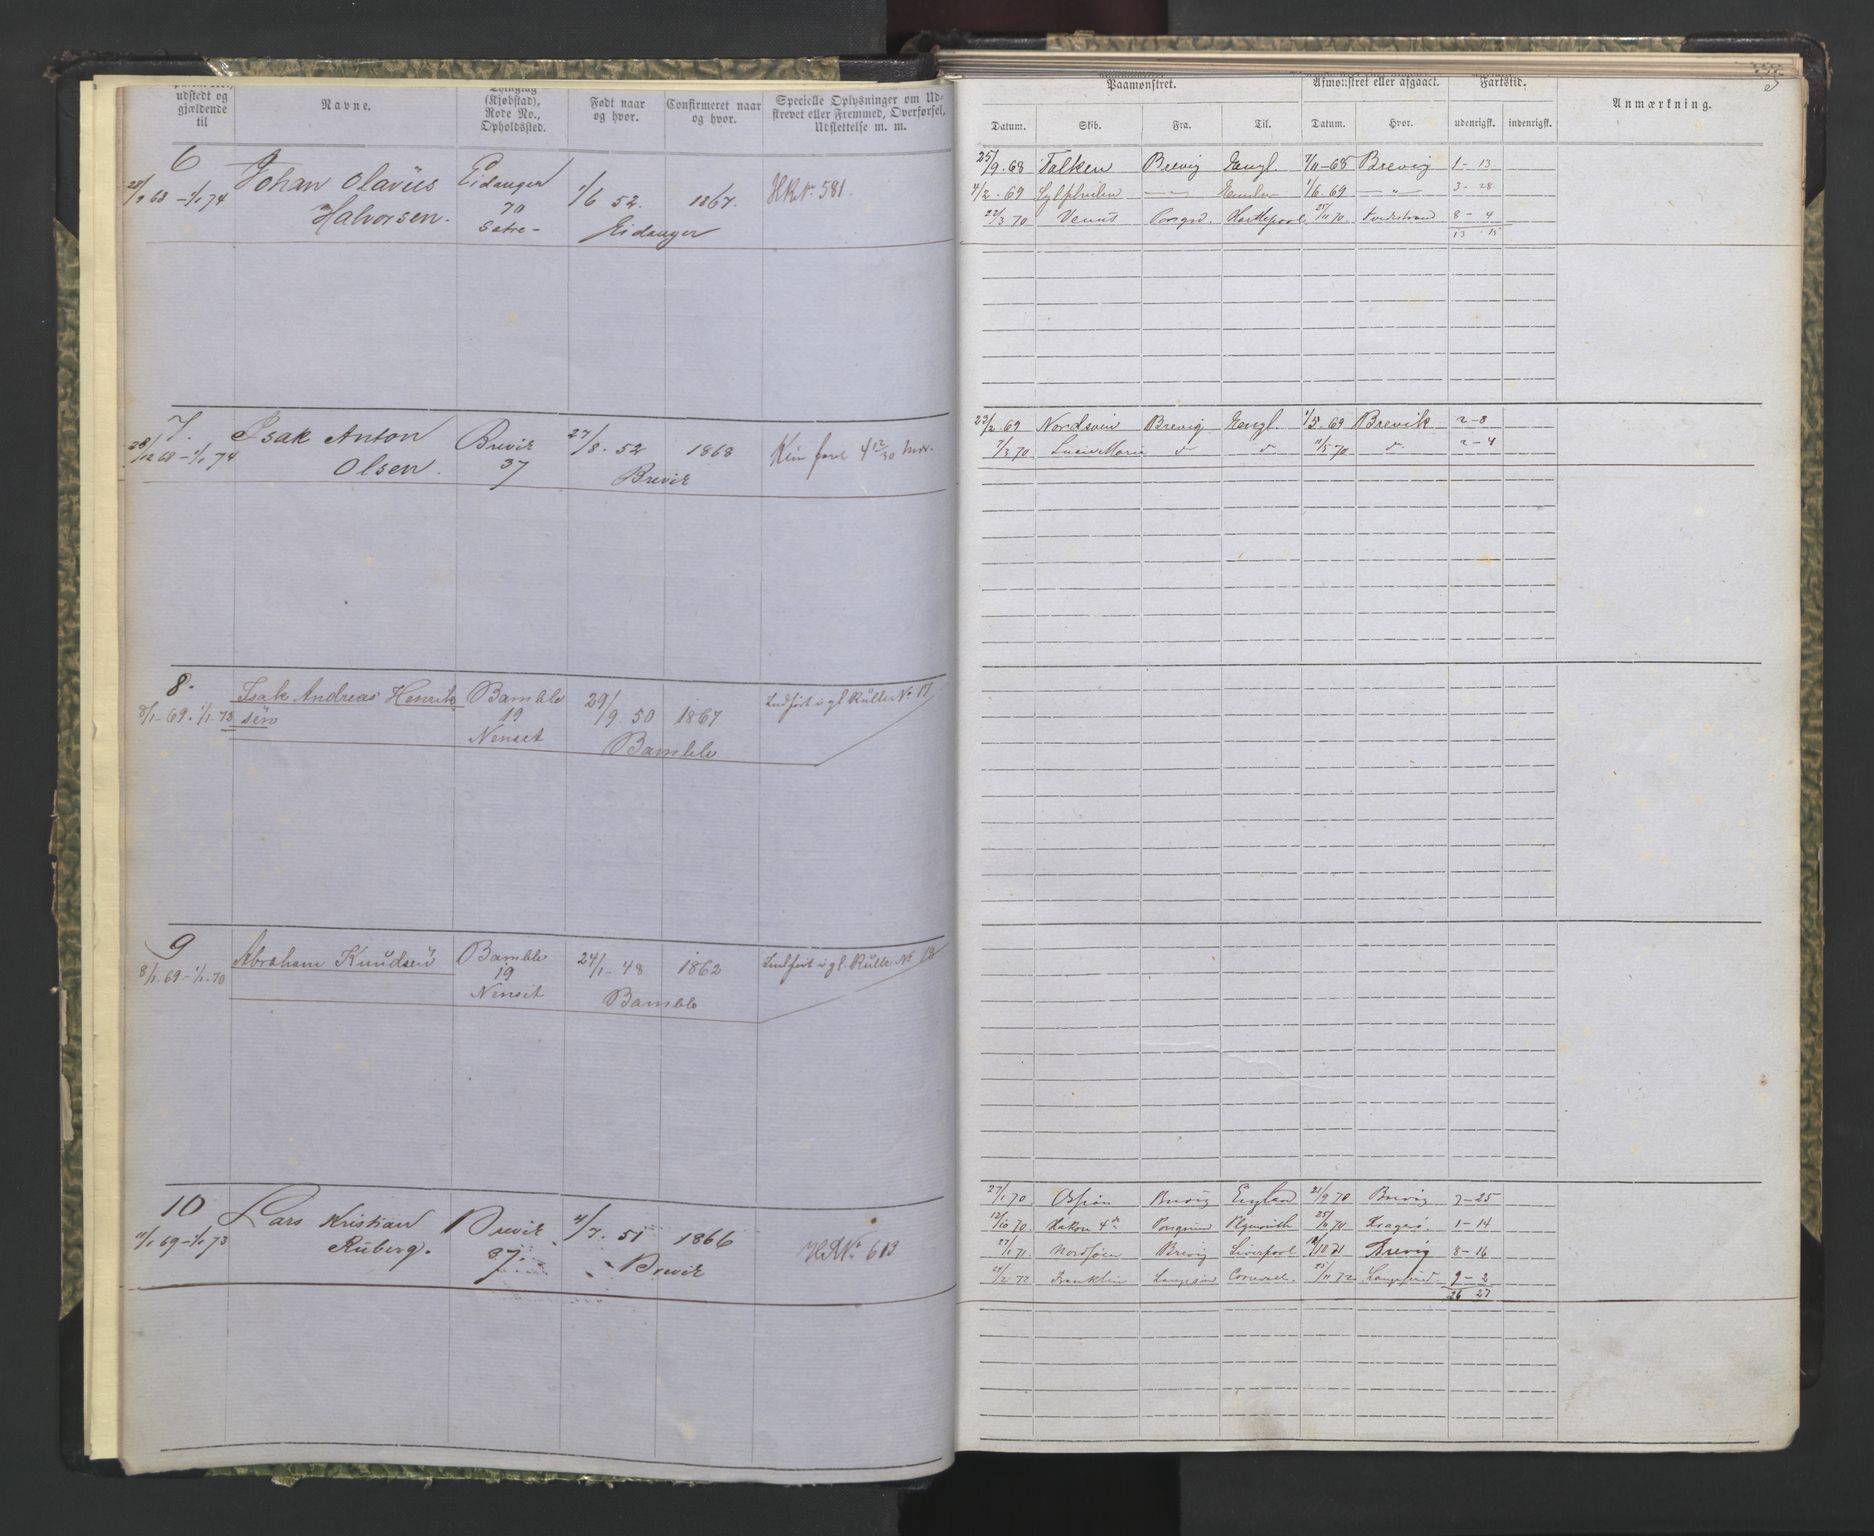 udstedt og
gjældende
til
Navne.
(Kjøbstad),
Rode No.,
Opholdssted.
Født naar
og hvor.
Confirmeret naar
og hvor.
Specielle Oplysninger om Ud-
strevet eller Fremmed, Overførsel,
Udslettelse m. m.
6
Johan Olavüs Eidanger 1/6 52. 1867. HRNr 581.
Halvorsen. 70
Eidanger
7.
28/12 68 - 1/1 74
Isak Anton Brevik 27/8. 52 1868
Olsen. 37 Brevik
8.
8/1-69. 1/1-73
Isak Andreas Henrik Bamble 29/9 50 1867 Indført i gl. Rulle No 17
sen 19
Nenset Bamble
9
8/1. 69 - 1/1. 70
Abraham Knudsen Bamble 24/1-48 1862 Indført i gl. Rulle No 18
19
Nenset Bamble
10
Lars Kristian Brevik 4/7. 51 1866 HRNo 613
Ruberg. 37. Brevik
Paamønstret. Afmønstret eller afgaaet. Fartstid.
Anmærkning.
Datum. Skib. Fra. Til. Datum. Hvor. udenrigst. indenrigst.
25/9. 68 Falken Brevig Engl. 7/11-68 Brevig 1-13
4/2. 69 1/6. 69 — " — 3-28
22/3 70 Venus Hartlepool 25/11 70. 8-4
13 15
23/2. 69 Brevig Engl. 1/5. 69 Brevik 2-8
7/3 70. Lucie Marie d d 11/5 70 d 2-4
27/1 70 Brevig England 21/9 70 Brevig 7-25
12/10 70. Hakon 4de Porsgrund Plymouth 25/11 70 Kragerø. 1-14
27/1 71. Brevig Liverpool Brevig 8-16
24/2. 72 Franklin Langesund 25/11 72 Langesund. 9-2
26 27